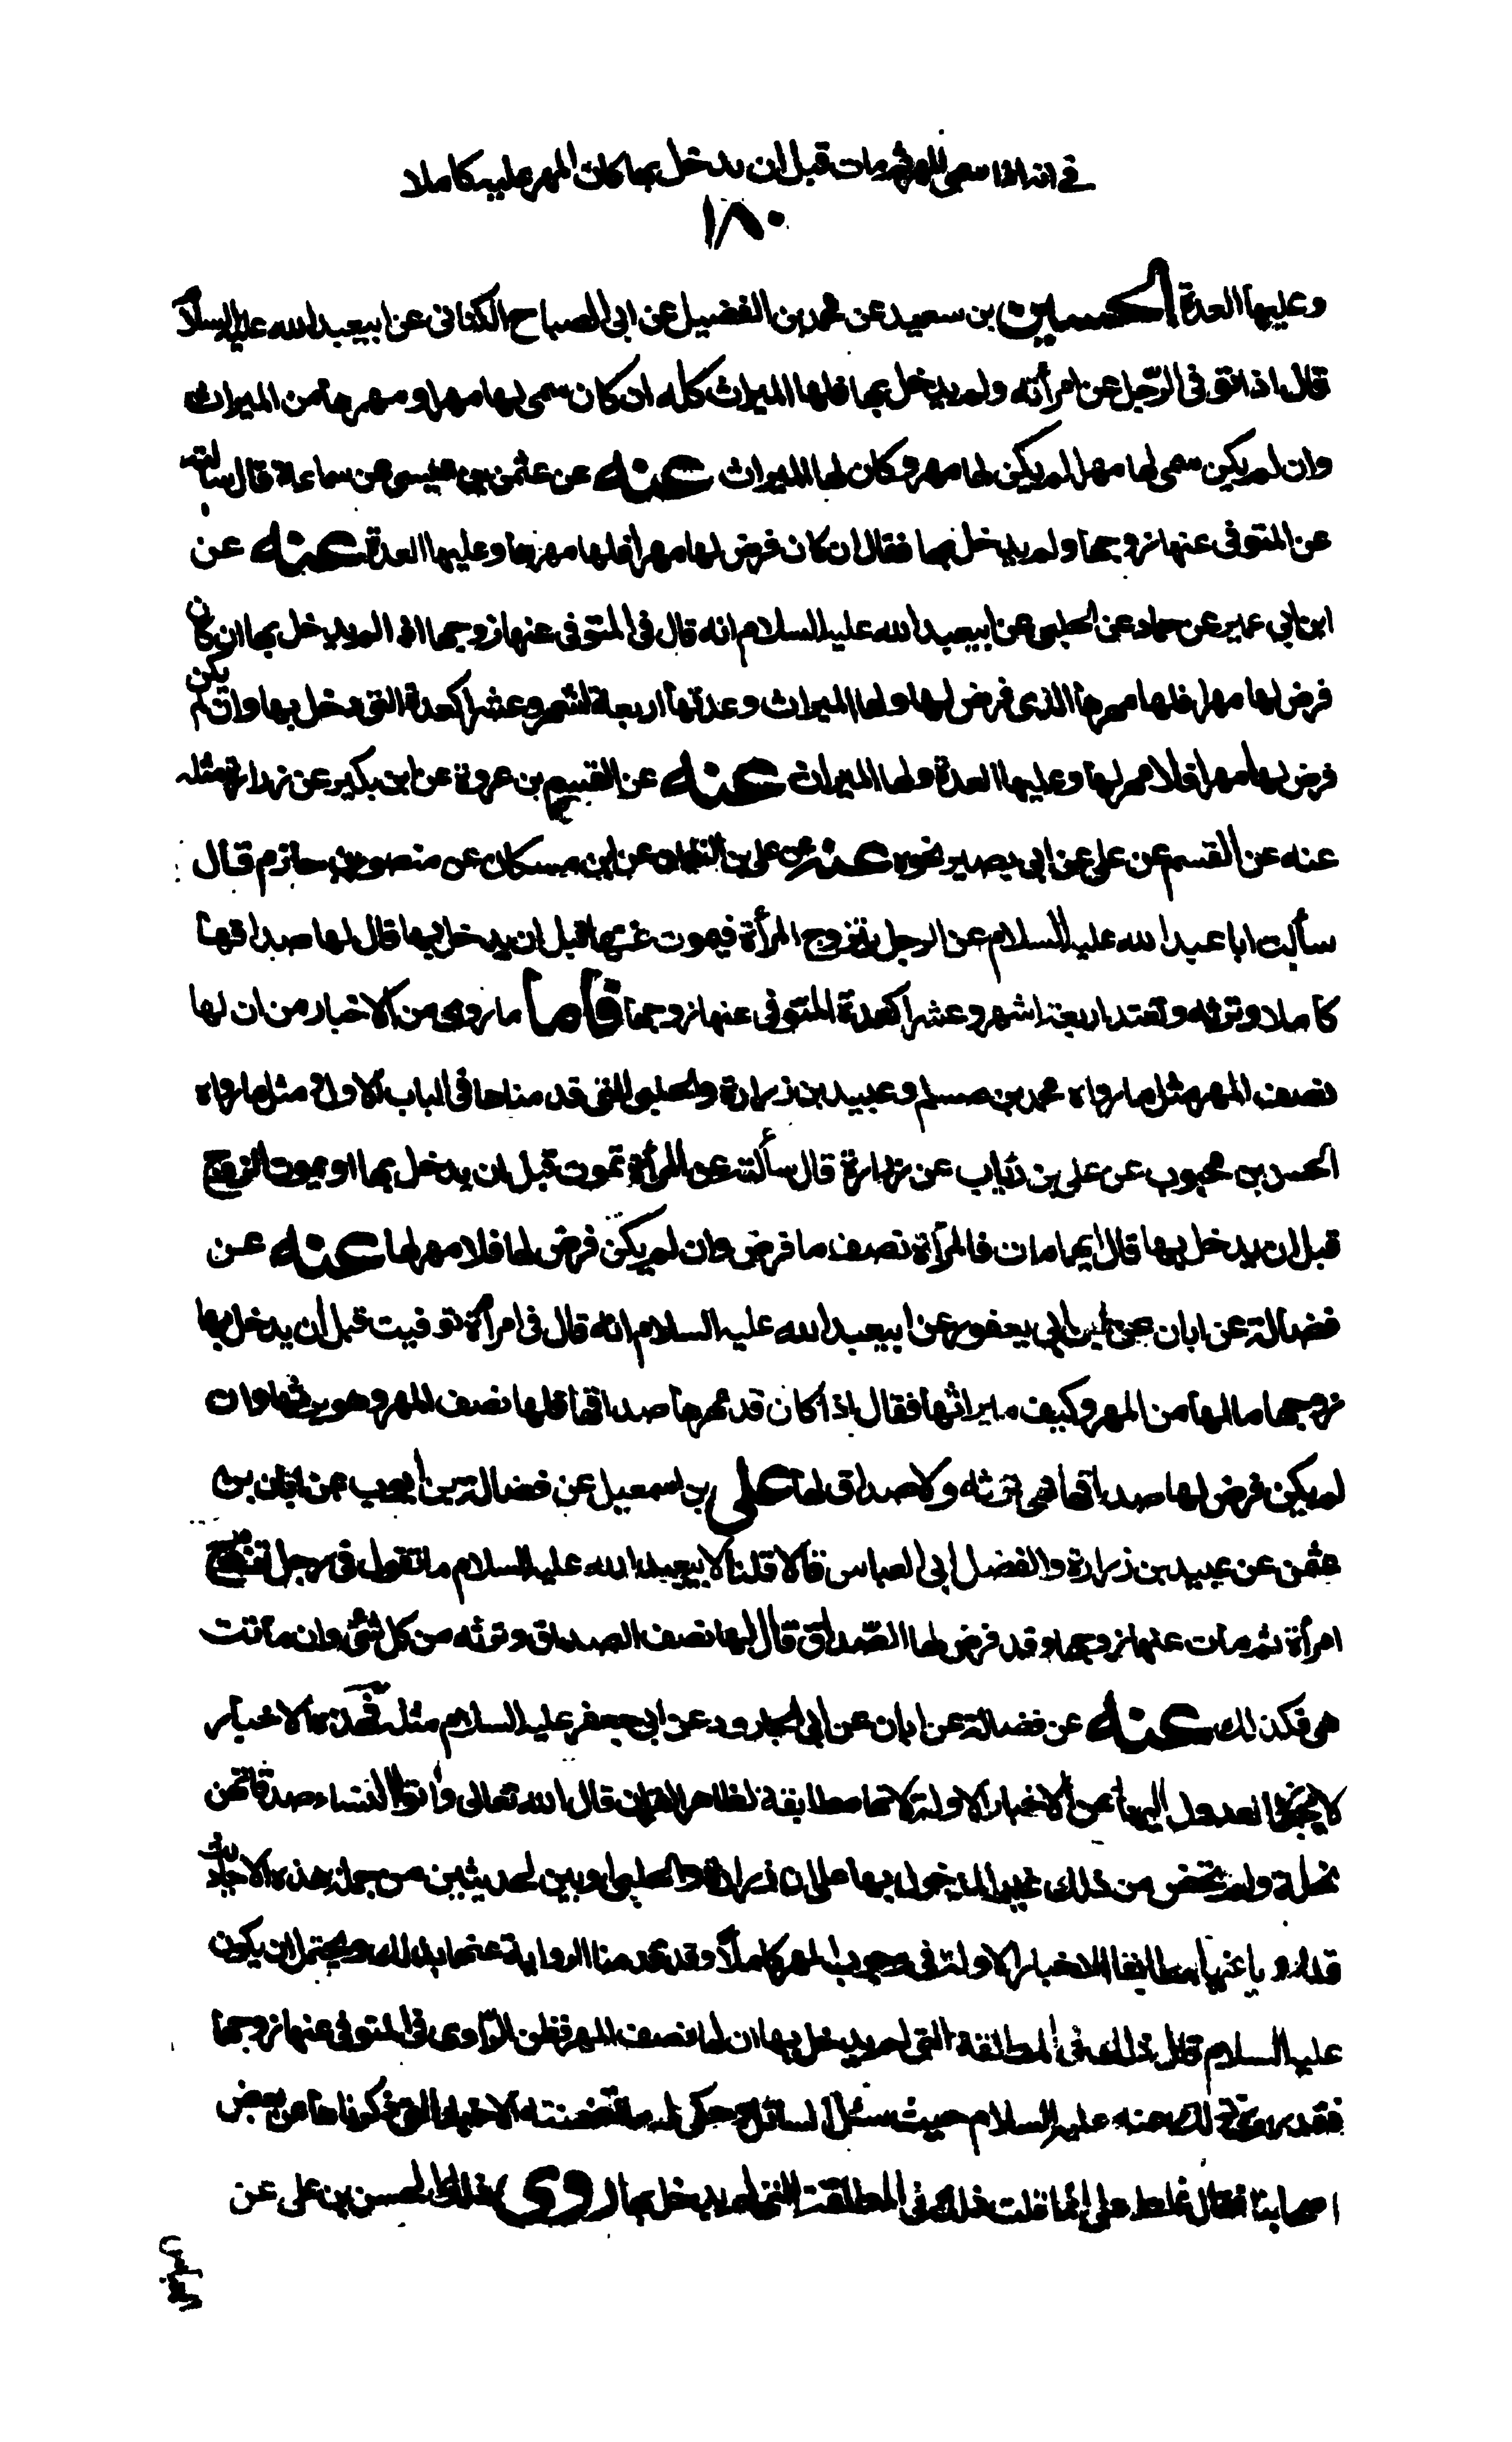 في انه اذا سمى المهر ثم مات قبل ان يدخل بها كان المهر عليه كاملا
١٨٠
وعليها العدة الحسين بن سعيد عن محمد بن الفضيل عن ابى الصباح الكنانى عن ابيعبد الله عليه السلام
قال اذا توفى الرّجل عن امرأته ولم يدخل بها فلها الميراث كله ان كان سمى لها مهرا ومهرها من الميراث
وان لم يكن سمى لها مهرا لم يكن لها مهر وكان لها الميراث عنه عن عثمن بن عيسى عن سماعة قال سالته
عن المتوفى عنها زوجها ولم يدخل بها فقال ان كان فرض لها مهرا فلها مهرها وعليها العدة عنه عن
ابن ابي عمير عن حماد عن الحلبى عن ابيعبد الله عليه السلام انه قال فى المتوفى عنها زوجها اذا لم يدخل بها ان كان
فرض لها مهرا فلها مهرها الذى فرض لها ولها الميراث وعدتها اربعة اشهر وعشرا كعدة التى دخل بها وان لم يكن
فرض لها مهرا فلا مهر لها وعليها العدة ولها الميراث عنه عن القسم بن عروة عن ابن بكير عن زرارة مثله
عنه عن القسم عن على عن ابى بصير نحوه عنه عن على بن النعمان عن ابن مسكان عن منصور بن حازم قال
سألت ابا عبد الله عليه السلام عن الرجل يتزوج المرأة فيموت عنها قبل ان يدخل بها قال لها صداقها
كاملا وترثه وتعتد اربعة اشهر وعشرا كعدة المتوفى عنها زوجها فاما ما روى من الاخبار من ان لها
نصف المهر مثل ما رواه محمد بن مسلم وعبيد بن زرارة والحلبى التى قدمناها فى الباب الاول مثل ما رواه
الحسن بن محبوب عن على بن رئاب عن زرارة قال سألته عن المرأة تموت قبل ان يدخل بها او يموت الزوج
قبل ان يدخل بها قال ايهما مات فللمرأة نصف ما فرض وان لم يكن فرض لها فلا مهر لها عنه عن
فضالة عن ابان عن ابن ابى يعفور عن ابيعبد الله عليه السلام انه قال فى امرأة توفيت قبل أن يدخل بها
زوجها ما لها من المهر وكيف ميراثها فقال اذا كان قد مهرها صداقها فلها نصف المهر وهو يرثها وان
لم يكن فرض لها صداقها فهى ترثه ولا صداق لها على بن اسمعيل عن فضالة بن أيوب عن ابان بن
عثمن عن عبيد بن زرارة والفضل ابى العباس قالا قلنا لابيعبد الله عليه السلام ما تقول فى رجل تزوج
امرأة ثم مات عنها زوجها وقد فرض لها الصّداق قال لها نصف الصداق وترثه من كل شئ وان ماتت
هى فكذلك عنه عن فضالة عن ابان عن ابى الجارود عن ابى جعفر عليه السلام مثله فهذه الاخبار
لا يجوز العدول اليها عن الاخبار الاولة لانها مطابقة لظاهر القران قال الله تعالى واتوا النساء صدقاتهن
نحلة ولم يخص من ذلك غير المدخول بها على ان زرارة والحلبى راويين لحديثين من جملة هذه الاحاديث
قد رويا عنهما مطابقا للاخبار الاولة فى وجوب المهر كاملا وقد قدمنا الرواية عنهما بذلك ويحتمل ان يكون
عليه السلام قال ذلك فى المطلقة التى لم يدخل بها ان لها نصف المهر فظن الرّاوى فى المتوفى عنها زوجها
فقد روى ذلك عنه عليه السلام حيث سئل السائل وحكى له ما تضمنته الاخبار التى ذكرناها عن بعض
اصحابنا فقال غلط على انما قلت ذلك فى المطلقة التى لم يدخل بها روى ذلك الحسن بن على عن